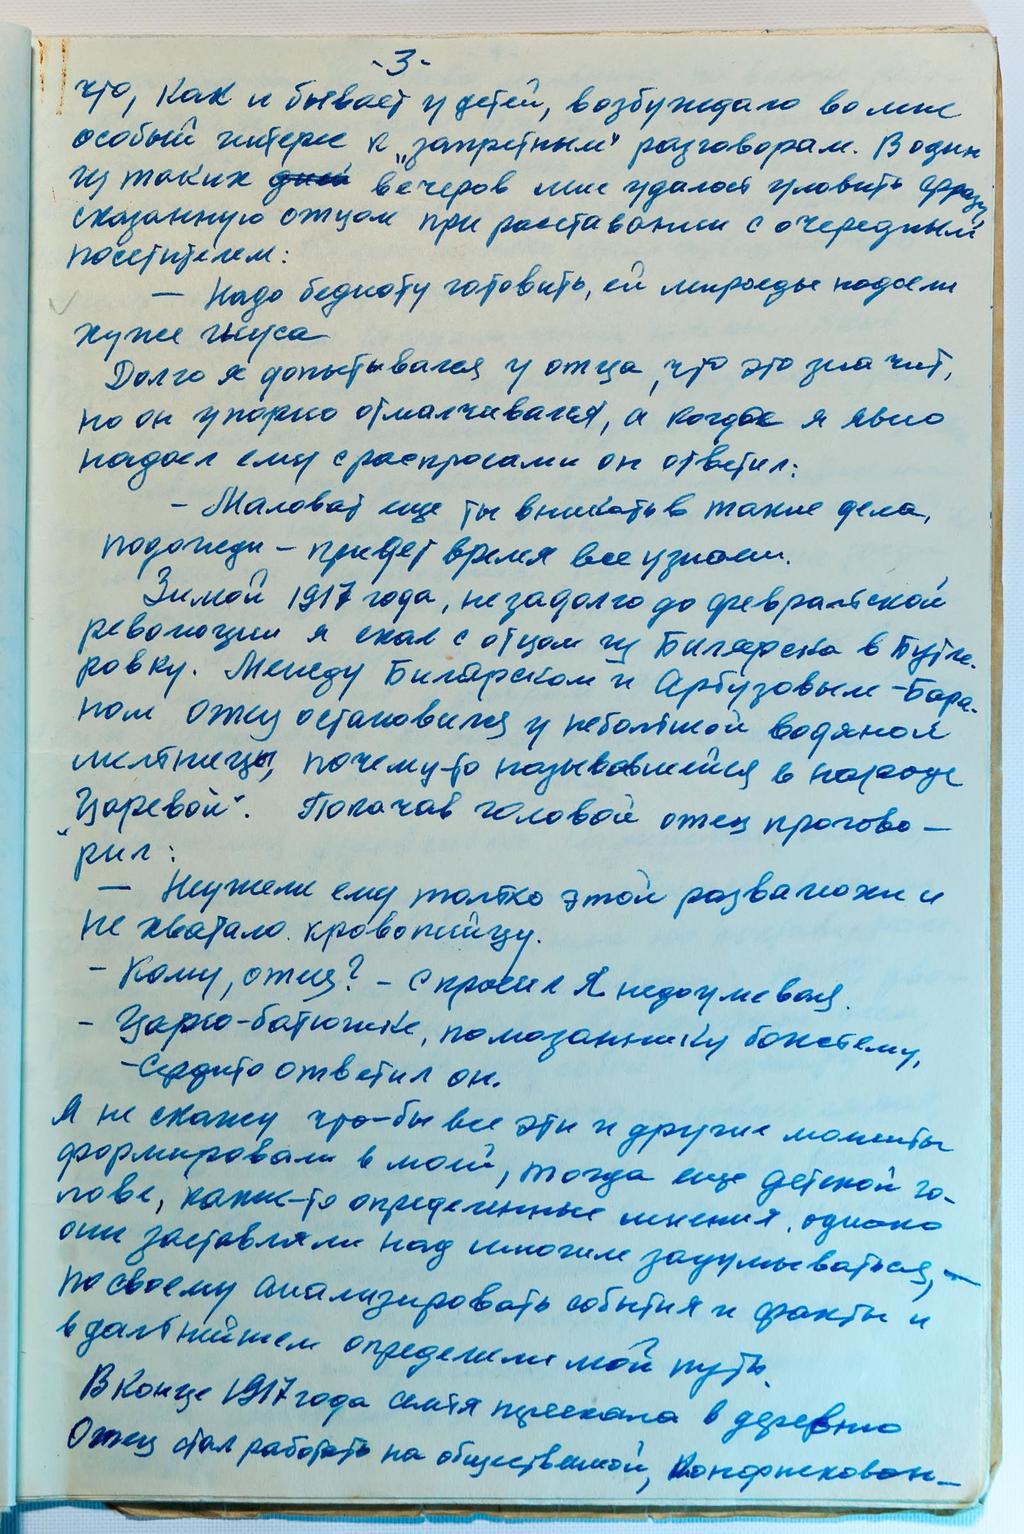 -3-
что, как и бывает у детей, возбуждало во мне
особый интерес к „запретным" разговорам. В один
из таких дней вечеров мне удалось уловить фразу,
сказанную отцом при расставании с очередным
посетителем:
— Надо бедноту готовить, ей мироеды надоели
хуже гнуса
Долго я допытывался у отца, что это значит,
но он упорно отмалчивался, а когда я явно
надоел ему с распросами он ответил:
- Маловат еще ты вникать в такие дела,
подожди - придет время все узнаеш.
Зимой 1917 года, незадолго до февральской
революции я ехал с отцом из Билярска в Бутле-
ровку. Между Билярском и Арбузовым-Бара-
ном отец остановился у небольшой водяной
мельницы, почему-то называвшейся в народе
„Царевой". Покачав головой отец прогово-
рил:
— Неужели ему только этой развалюхи и
не хватало кровопийцу.
- Кому, отец? - спросил я недоумевая.
- Царю-батюшке, помазаннику божьему,
- сердито ответил он.
Я не скажу что-бы все эти и другие моменты
формировали в моей, тогда еще детской го-
лове, какие-то определенные мнения, однако
они заставляли над многим задумываться, —
по своему анализировать события и факты и
в дальнейшем определили мой путь.
В конце 1917 года семья переехала в деревню
Отец стал работать на общественной, конфискован-